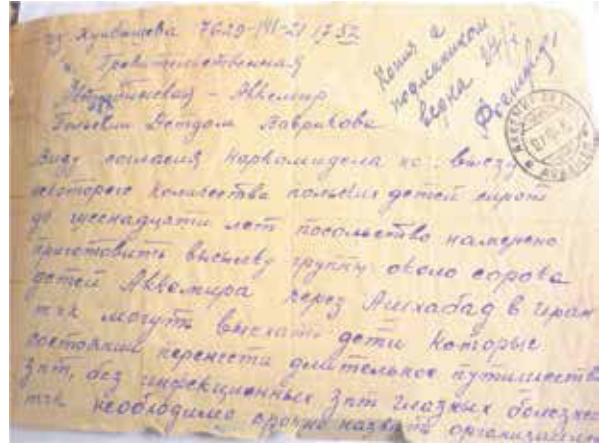 из Куйбышева 7629-141-21 17 52
Правительственная
Копия с
подлинником
верна
Польский Детдом Лаврикова
Виду согласия Наркоминдела на выезд
некоторого количества польских детей сирот
до шеснадцати лет посольство намерено
приготовить высылку группу около сорока
детей Аккемира через Ашхабад в Иран
тчк могуть выехать дети которые
состоянии перенести длительное путишеств
зпт, без инфекционных зпт глазных болезне
тчк необходимо срочно назвать организацию